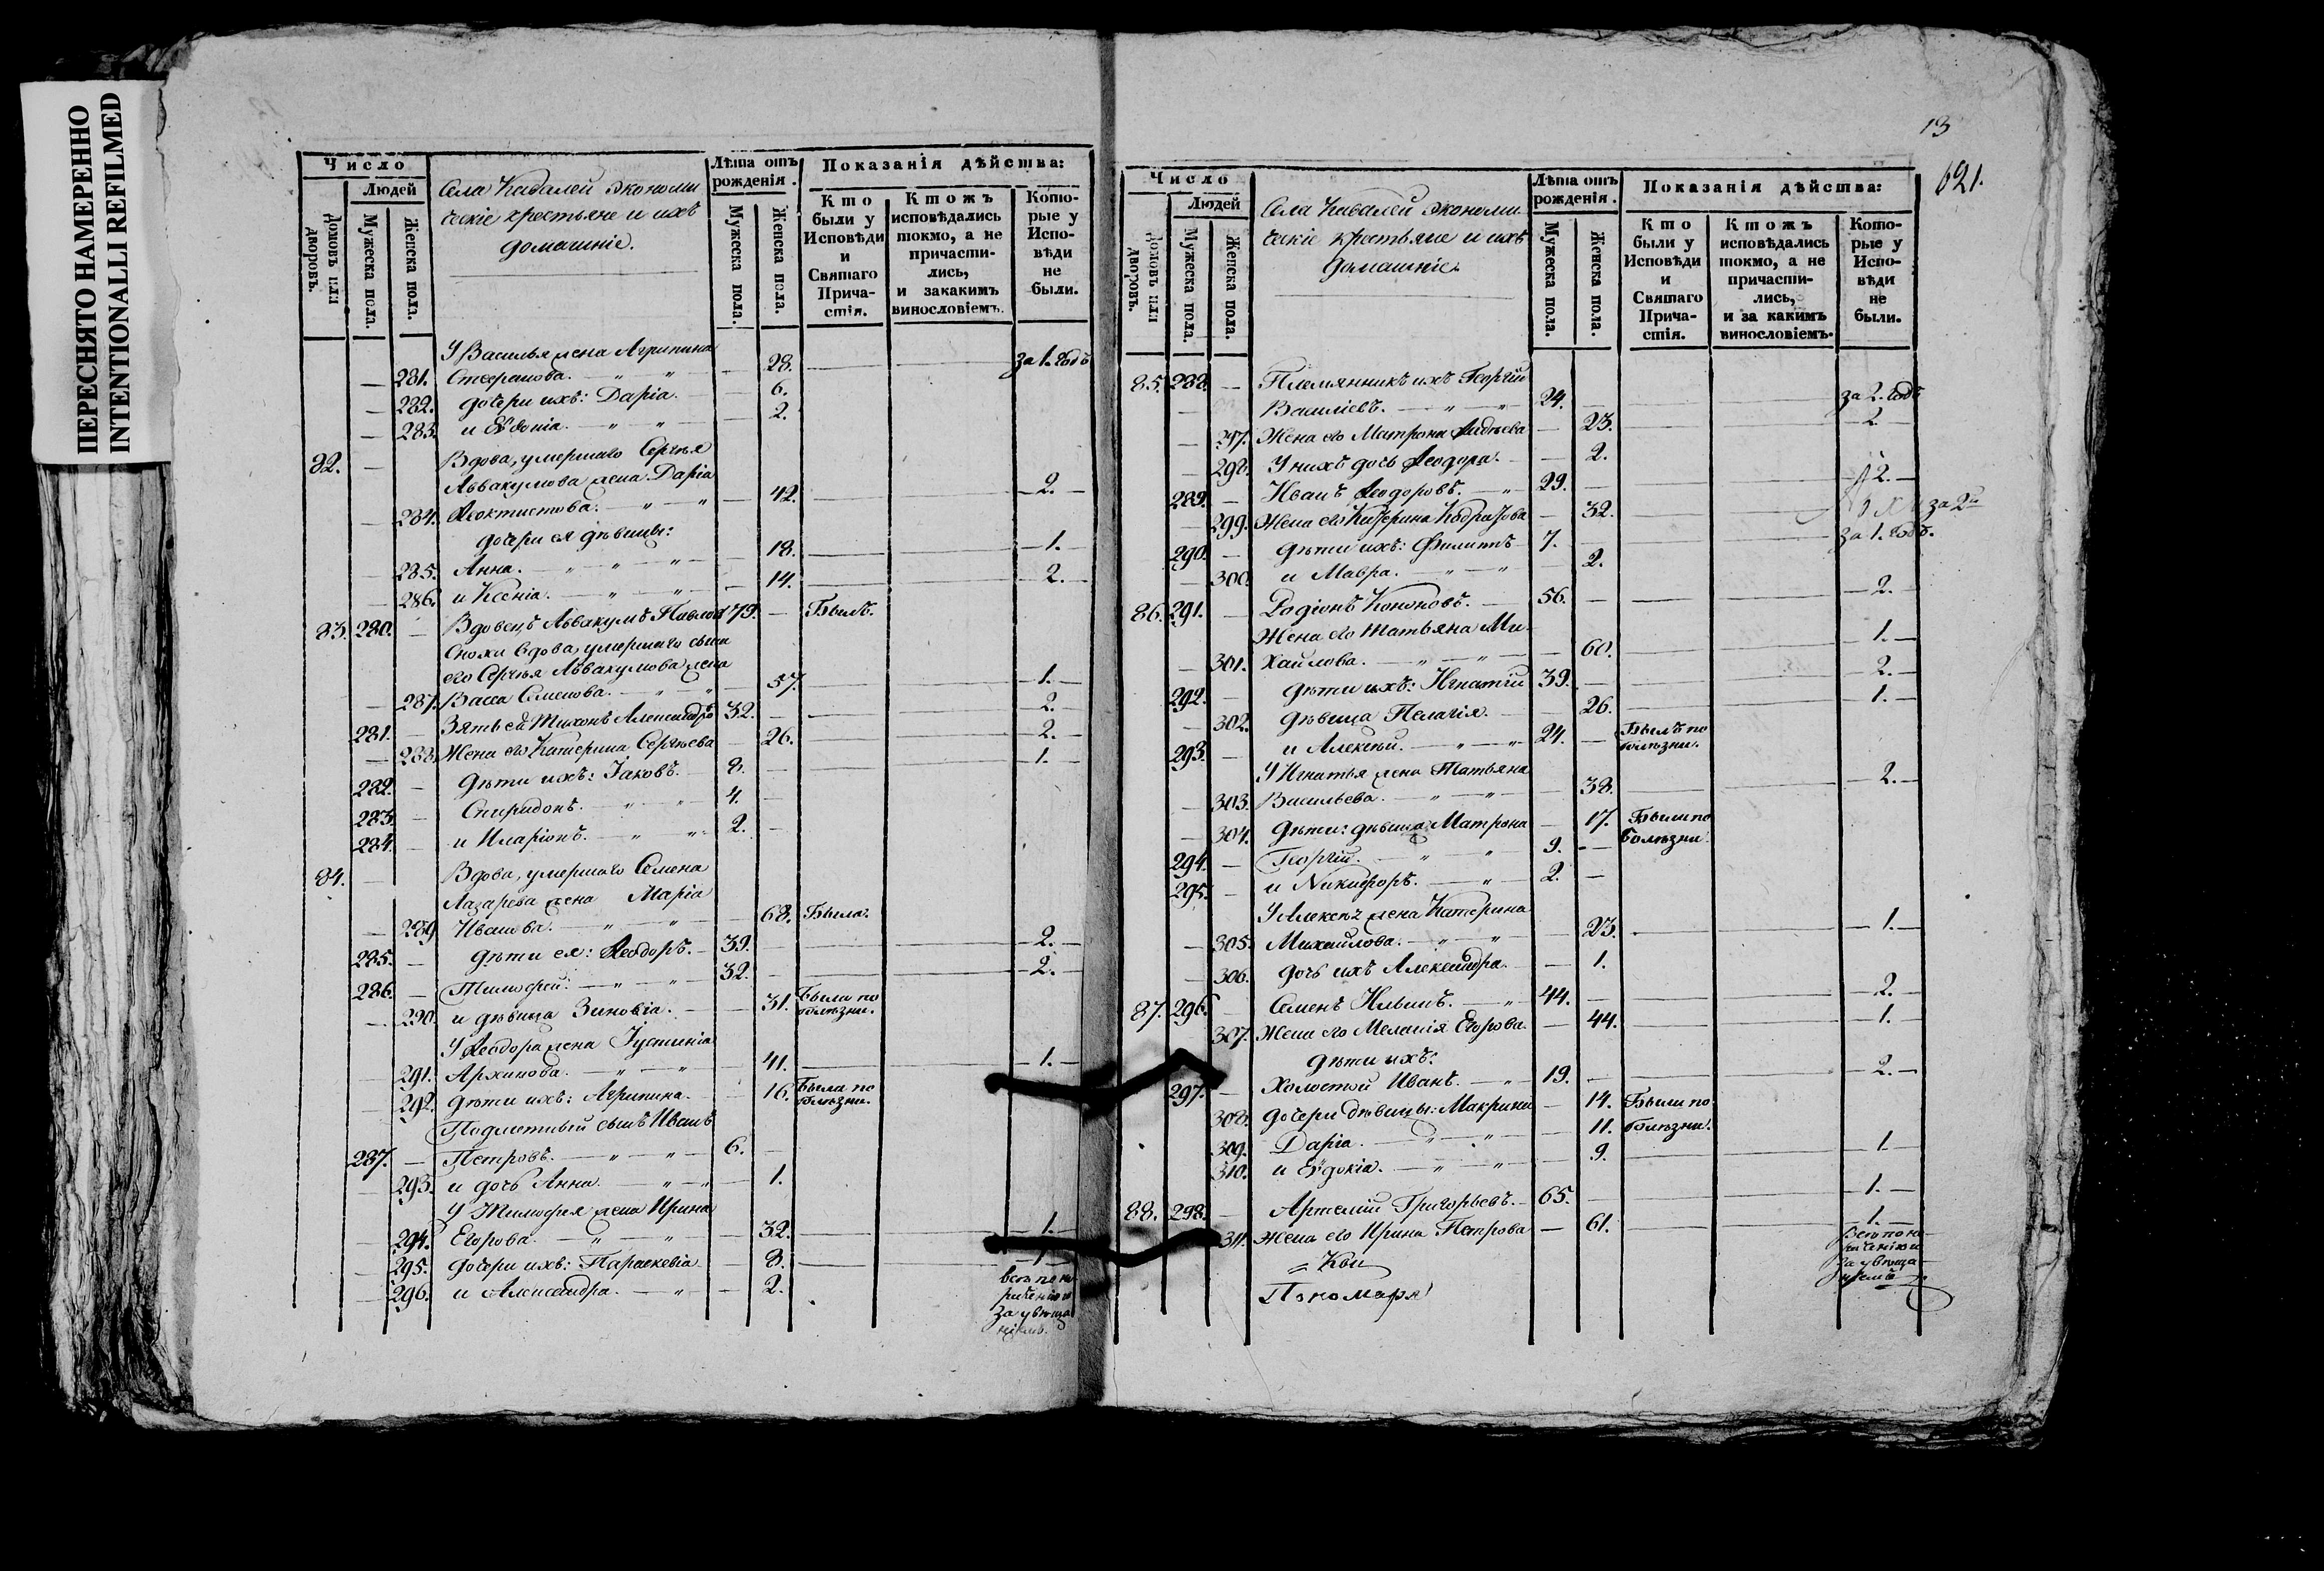 ПЕРЕСНЯТО НАМЕРЕННО
INTENTIONALLI REFILMED
Число
Людей
Домовъ или дворовъ.
Мужеска пола.
Женска пола.
Села Кивалей экономи
ческіе крестьяне и ихъ
домашніе.
Лѣта отъ рожденія.
Мужеска пола.
Женска пола.
Показанія дѣйства:
Кто были у Исповѣди и Святаго Причастія.
Ктожъ исповѣдались токмо, а не причастились, и закакимъ винословіемъ.
Которые у Исповѣди не были.
У Василья жена Агрипина
281. Стефанова. 28. за 1. годъ
282. дочери ихъ: Дарiа. 6.
283. и Евѳоніа. 2.
82. Вдова, умершаго Сергѣя
Аввакумова жена Дарiа
284. Ѳеоктистова. 42. 2.
дочери ея дѣвицы:
285. Анна. 18. 1.
286. и Ксеніа. 14. 2.
83. 280. Вдовецъ Аввакумъ Павловъ 79. Былъ.
Сноха вдова, умершаго сына
его Сергѣя Аввакумова жена
287. Васса Семенова. 57. 1.
281. Зять ея Тихонъ Александровъ 32. 2.
288. Жена его Катерина Сергѣева 26. 2.
282. дѣти ихъ: Іаковъ. 8. 1.
283. Спиридонъ. 4.
284. и Иларіонъ. 2.
84. Вдова, умершаго Семена
Лазарева жена Маріа
289. Иванова. 68. Была.
285. дѣти ея: Ѳеодоръ. 39. 2.
286. Тимофей. 32. 2.
290. и дѣвица Зиновіа. 31. Была по болѣзни.
У Ѳеодора жена Іустиніа
291. Архипова. 41. 1.
292. дѣти ихъ: Агрипина. 16. Была по болѣзни.
Подметный сынъ Иванъ
287. Петровъ. 6.
293. и дочь Анна. 1.
У Тимофея жена Ирина
294. Егорова. 32. 1.
295. дочери ихъ: Параскевіа 8. 1
296. и Александра. 2.
13
621.
Число
Людей
Домовъ или дворовъ.
Мужеска пола.
Женска пола.
Села Кивалей экономи
ческіе крестьяне и ихъ
домашніе.
Лѣта отъ рожденія.
Мужеска пола.
Женска пола.
Показанія дѣйства:
Кто были у Исповѣди и Святаго Причастія.
Ктожъ исповѣдались токмо, а не причастились, и за какимъ винословіемъ.
Которые у Исповѣди не были.
85. 288. Племянникъ ихъ Георгій
Василіевъ. 24. за 2. годъ
297. Жена его Матрона 23. 2
298. У нихъ дочь Ѳеодора. 2.
289. Иванъ Ѳеодоровъ. 29. 2.
299. Жена его Катерина 32. за 2
290. дѣти ихъ: Филиппъ 7. за 1. годъ.
300. и Мавра. 2.
86. 291. Родіонъ Кононовъ. 56. 2.
Жена его Татьяна Ми-
301. хайлова. 60. 1.
292. дѣти ихъ: Игнатій 39. 2.
302. дѣвица Пелагія. 26. 1.
293. и Алексѣй. 24. Былъ по болѣзни.
У Игнатья жена Татьяна
303. Васильева. 38. 2.
304. дѣти: дѣвица Матрона 17. Были по болѣзни.
294. Георгій. 9.
295. и Никифоръ. 2.
У Алексѣя жена Катерина
305. Михайлова. 23. 1.
306. дочь ихъ Александра. 1.
87. 296. Семенъ Ильинъ. 44. 2.
307. Жена его Меланія Егорова. 44. 1.
дѣти ихъ:
297. Холостой Иванъ. 19. 2.
308. дочери дѣвицы: Макрина 14. Были по
309. Дарiа. 11. болѣзни.
310. и Евдокіа. 9. 1
88. 298. Артемій Григорьевъ. 65. 1.
311. Жена его Ирина Петрова 61. 1.
Пономарь